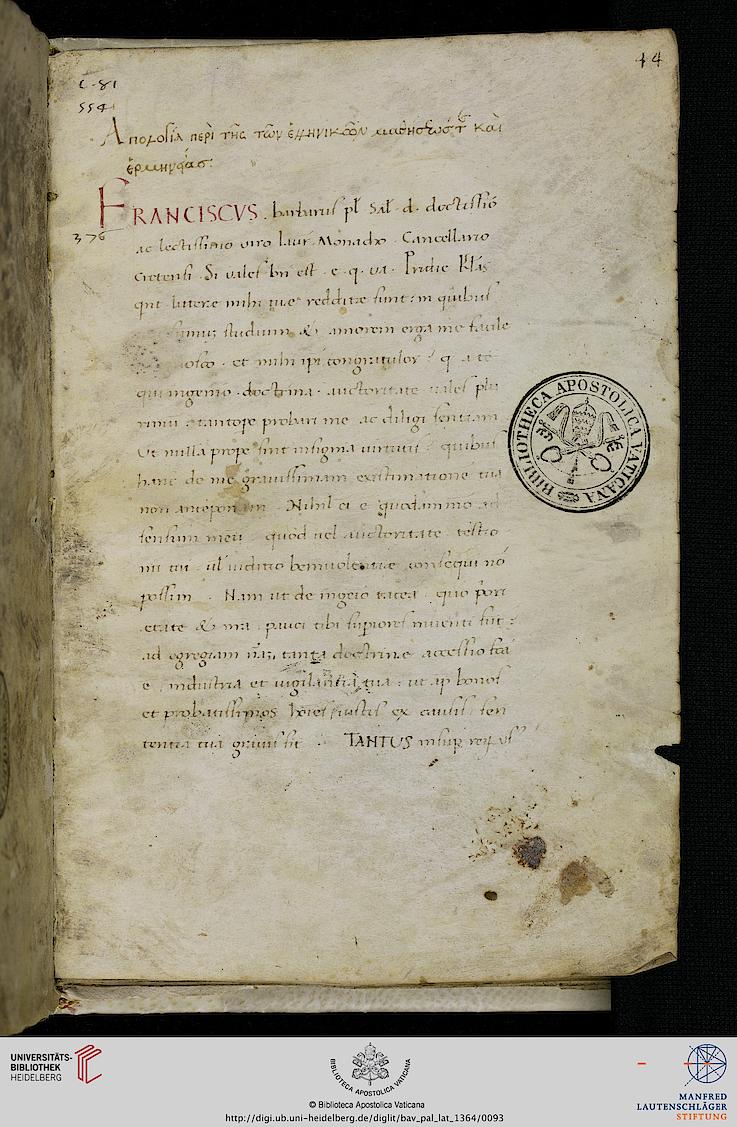 44
C. 81
554
Ἀπολογία περὶ τῆς τῶν ἑλληνικῶν μαθήσεως καὶ
ἑρμηνείας:
FRANCISCVS barbarus pl̄ Sal d. doctissiō
376
ac lectissimo viro Laur Monacho Cancellario
Cretensi. Si vales bn̄ est. e. q. va. Pridie Kl̄as
qn̄t littere mihi tue reddite sunt: in quibus
studium & amorem erga me facile
et mihi ipi congratulor q a te
qui ingenio doctrina auctoritate vales plu
rimū tantope probari me ac diligi sentiam
Ut nulla prope sint insignia virtutis quibus
hanc de me gravissimam existimatione tua
non anteponam. Nihil ei e quodammō ad
sensum meū quod vel auctoritate testīo
nii tui ul iuditio benivolentie consequi nō
possim. Nam ut de ingeīo tacea quo
etate & mia pauci tibi supiores inventi sūt:
ad egregiam tanta doctrine accessio
e industria et vigilantia tua: ut ap bonos
et probatissimos hoīes iustis ex causis sen
tentia tua gravis sit TANTUS insup
BIBLIOTHECA APOSTOLICA VATICANA
UNIVERSITÄTS-
BIBLIOTHEK
HEIDELBERG
BIBLIOTECA APOSTOLICA VATICANA
© Biblioteca Apostolica Vaticana
http://digi.ub.uni-heidelberg.de/diglit/bav_pal_lat_1364/0093
MANFRED
LAUTENSCHLÄGER
STIFTUNG